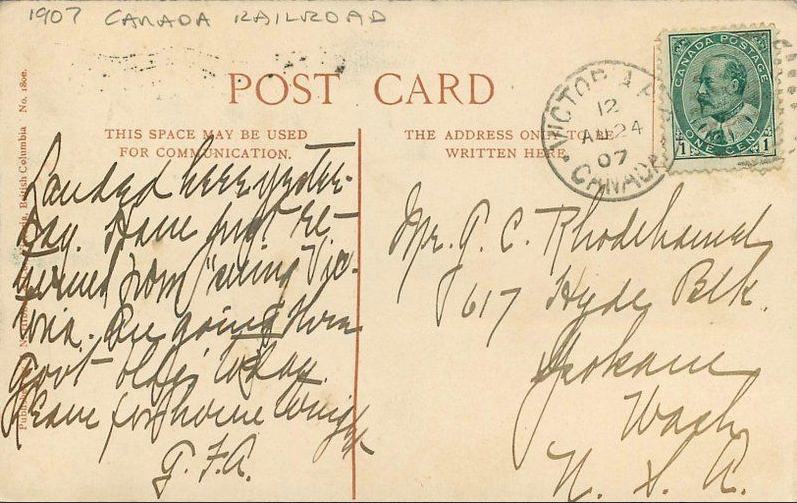 1907 CANADA RAILROAD
POST CARD
THIS SPACE MAY BE USED
FOR COMMUNICATION.
THE ADDRESS ONLY TO BE
WRITTEN HERE
VICTORIA
12
AU 24
07
CANADA
CANADA POSTAGE
1 ONE CENT 1
British Columbia No. 1800.
Landed here yester-
day. Have just re-
turned from "seeing Vic-
toria. Are going thru
Govt bldg today.
Leave for home tonight
G.F.A.
Mr. P. C. Rhodehamel
617 Hyde Blk.
Spokane
Wash
U. S. A.